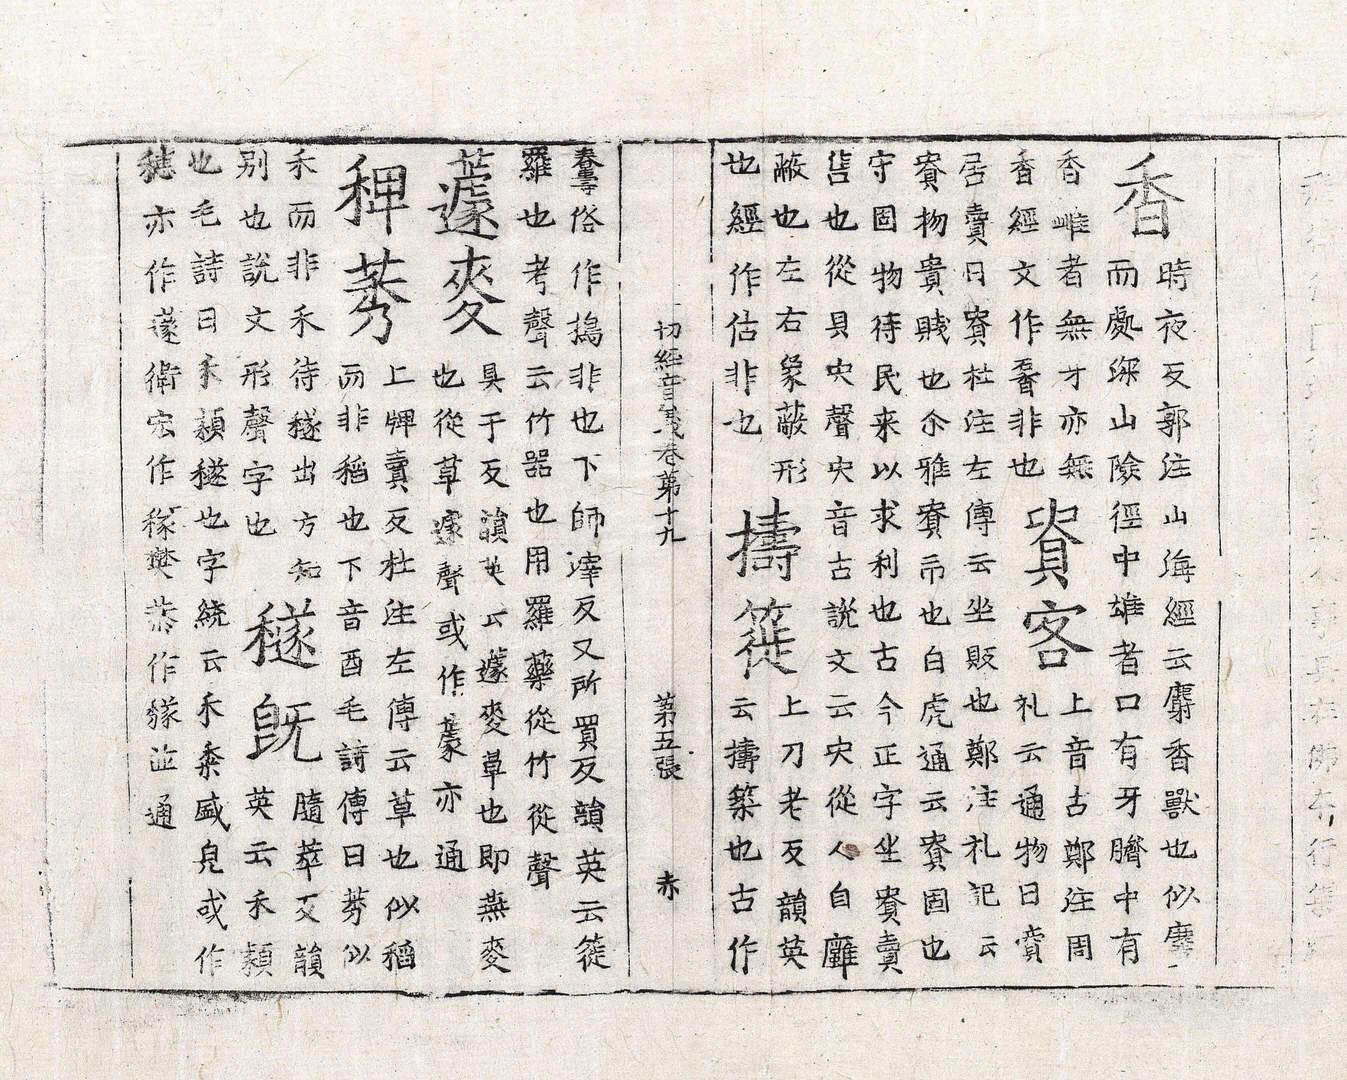 香
時夜反郭注山海經云麝香獸也似麞
而處深山險徑中雄者口有牙臍中有
香雌者無牙亦無
香經文作䣛非也
賨客
上音古鄭注周
礼云通物曰賨
居賣曰賨杜注左傳云坐販也鄭注礼記云
賨物貴賤也尒雅賨帀也白虎通云賨固也
守固物待民来以求利也古今正字坐賨賣
售也從貝㕯聲㕯音古説文云㕯從人自雝
蔽也左右象蔽形
也經作估非也
擣簁
上刀老反韻英
云擣築也古作
𢷬俗作搗非也下師滓反又所買反韻英云簁
羅也考聲云竹器也用羅藥從竹從聲
蘧麥
具于反韻英云蘧麥草也即燕麥
也從草遽聲或作蕖亦通
稗莠
上牌賣反杜注左傳云草也似稻
而非稻也下音酉毛詩傳曰莠似
禾而非禾待穟出方知
别也説文形聲字也
穟既
隨萃反韻
英云禾穎
也毛詩曰禾穎穟也字統云禾黍盛皃或作
穗亦作蓫衛宏作稼樊恭作䅘並通
切經音義卷第十九
第五張
赤